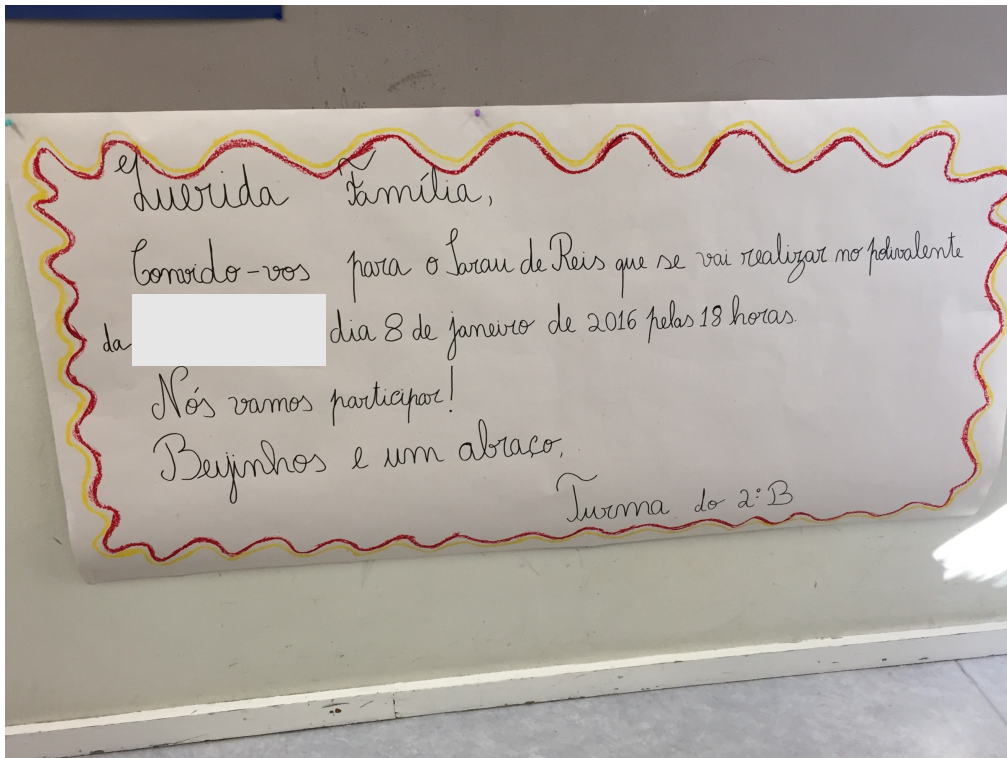 Querida Família,
Convido-vos para o Sarau de Reis que se vai realizar no polivalente
da dia 8 de janeiro de 2016 pelas 18 horas.
Nós vamos participar!
Beijinhos e um abraço,
Turma do 2º B